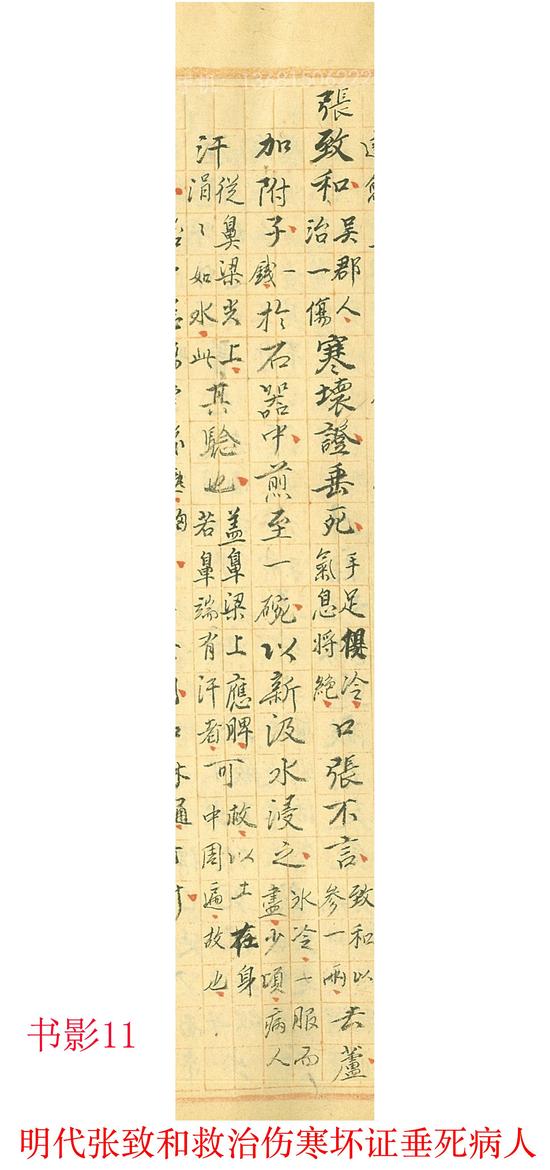 張致和吳郡人治一傷寒壞證垂死手足俱冷氣息將絕口張不言致和以參一兩去蘆
加附子一錢於石器中煎至一碗以新汲水浸之氷冷一服而盡少頃病人
汗從鼻梁尖上涓〻如水此其驗也盖鼻梁上應脾若鼻端有汗者可故以土在身中周遍故也
书影11
明代张致和救治伤寒坏证垂死病人